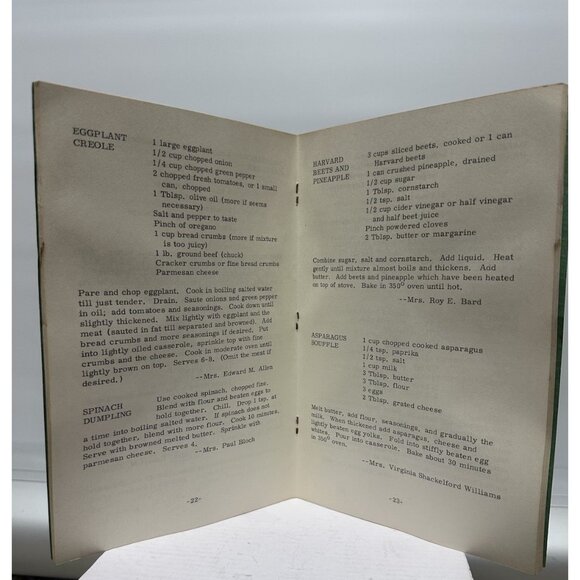 EGGPLANT
CREOLE
1 large eggplant
1/2 cup chopped onion
1/4 cup chopped green pepper
2 chopped fresh tomatoes, or 1 small
can, chopped
1 Tblsp. olive oil (more if seems
necessary)
Salt and pepper to taste
Pinch of oregano
1 cup bread crumbs (more if mixture
is too juicy)
1 lb. ground beef (chuck)
Cracker crumbs or fine bread crumbs
Parmesan cheese
Pare and chop eggplant. Cook in boiling salted water
till just tender. Drain. Saute onions and green pepper
in oil; add tomatoes and seasonings. Cook down until
slightly thickened. Mix lightly with eggplant and the
meat (sauted in fat till separated and browned). Add
bread crumbs and more seasonings if desired. Put
into lightly oiled casserole, sprinkle top with fine
crumbs and the cheese. Cook in moderate oven until
lightly brown on top. Serves 6-8. (Omit the meat if
desired.)
--Mrs. Edward M. Allen
SPINACH
DUMPLING
Use cooked spinach, chopped fine.
Blend with flour and beaten eggs to
hold together. Chill. Drop 1 tsp. at
a time into boiling salted water. If spinach does not
hold together, blend with more flour. Cook 10 minutes.
Serve with browned melted butter. Sprinkle with
parmesan cheese. Serves 4.
--Mrs. Paul Bloch
-22-
HARVARD
BEETS AND
PINEAPPLE
3 cups sliced beets, cooked or 1 can
Harvard beets
1 can crushed pineapple, drained
1/2 cup sugar
1 Tbspl. cornstarch
1/2 tsp. salt
1/2 cup cider vinegar or half vinegar
and half beet juice
Pinch powdered cloves
2 Tblsp. butter or margarine
Combine sugar, salt and cornstarch. Add liquid. Heat
gently until mixture almost boils and thickens. Add
butter. Add beets and pineapple which have been heated
on top of stove. Bake in 350° oven until hot.
--Mrs. Roy E. Bard
ASPARAGUS
SOUFFLE
1 cup chopped cooked asparagus
1/4 tsp. paprika
1/2 tsp. salt
1 cup milk
3 Tblsp. butter
3 Tblsp. flour
3 eggs
2 Tblsp. grated cheese
Melt butter, add flour, seasonings, and gradually the
milk. When thickened add asparagus, cheese and
lightly beaten egg yolks. Fold into stiffly beaten egg
whites. Pour into casserole. Bake about 30 minutes
in 350° oven.
--Mrs. Virginia Shackelford Williams
-23-